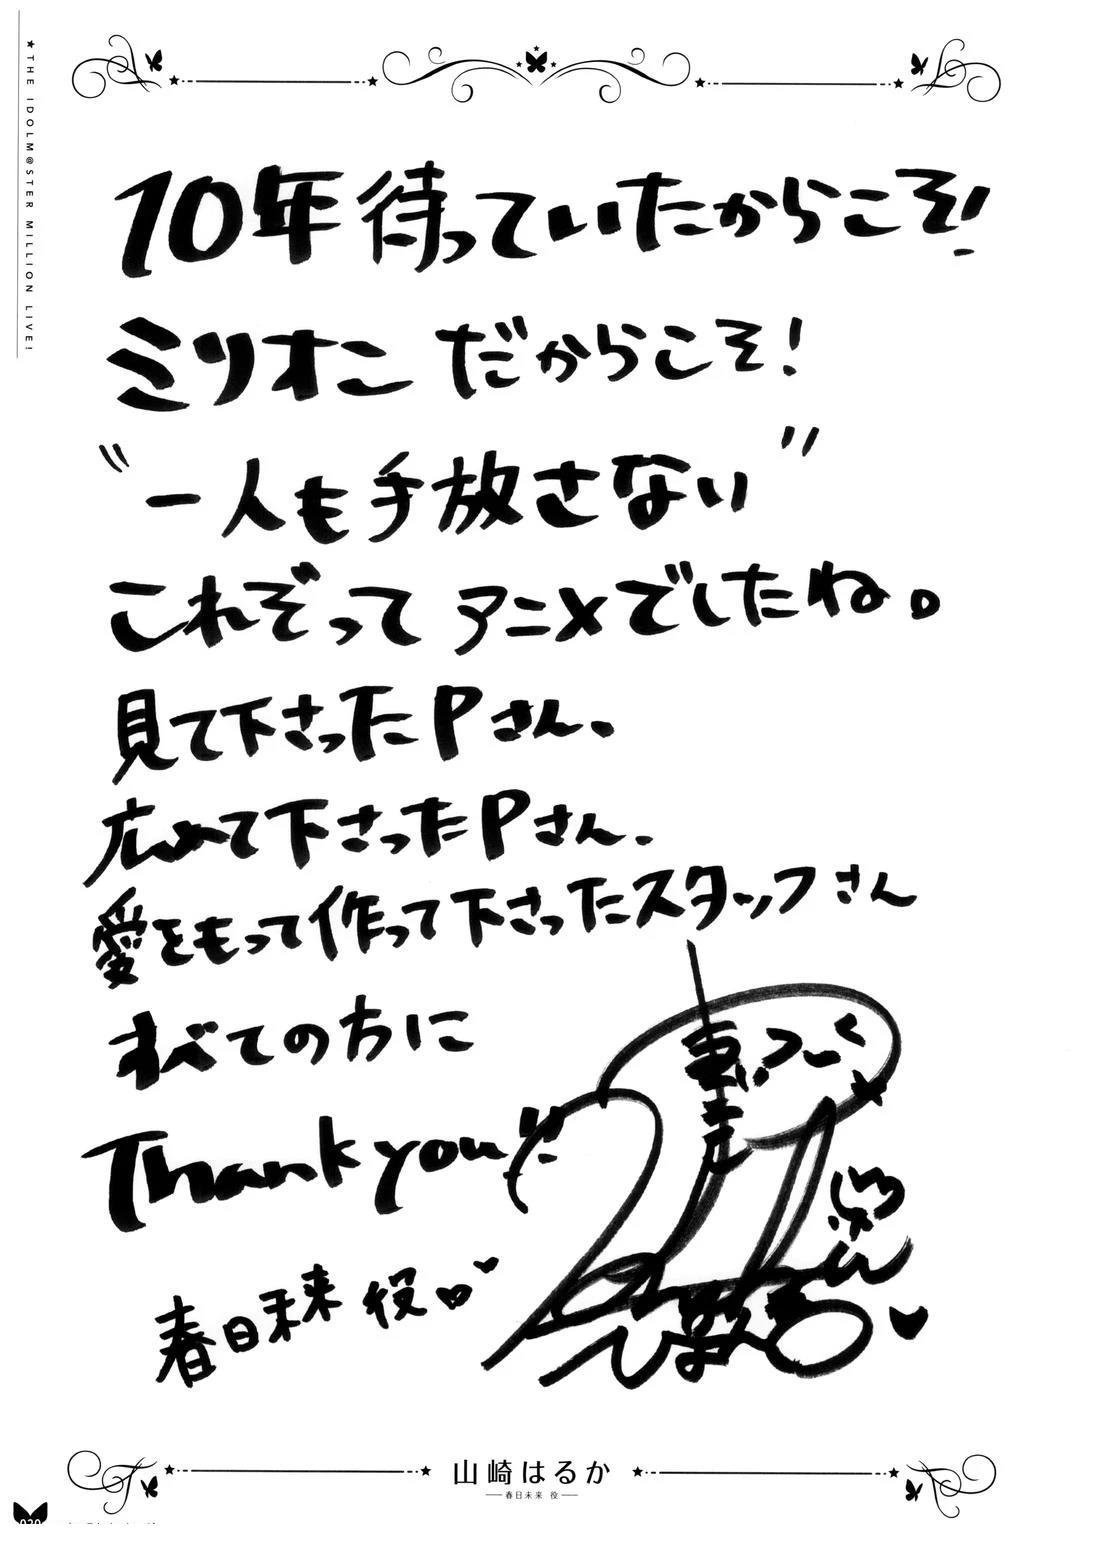 ★THE IDOLM@STER MILLION LIVE!
10年待っていたからこそ!
ミリオンだからこそ!
"一人も手放さない"
これぞってアニメでしたね。
見て下さったPさん、
広めて下さったPさん、
愛をもって作って下さったスタッフさん
すべての方に
Thank you
春日未来 役
山崎はるか
春日未来 役